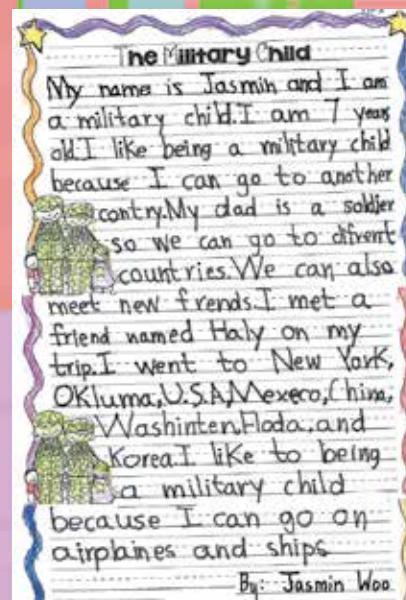 The Military Child
My name is Jasmin and I am
a military child.I am 7 years
old.I like being a military child
because I can go to another
contry.My dad is a soldier
so we can go to difrent
countries.We can also
meet new frends.I met a
friend named Haly on my
trip.I went to New York,
OKluma,U.S.A,Mexeco,China,
Washinten,Floda,and
Korea.I like to being
a military child
because I can go on
airplaines and ships
By: Jasmin Woo